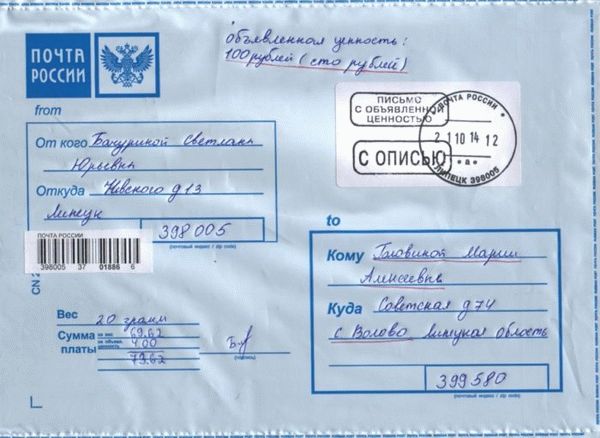 объявленная ценность:
100 рублей (сто рублей)
ПОЧТА
РОССИИ
from
От кого Бачуриной Светланы
Юрьевны
Откуда Невского д 13
Липецк
398005
(почтовый индекс / zip code)
ПИСЬМО
С ОБЪЯВЛЕННОЙ
ЦЕННОСТЬЮ
С ОПИСЬЮ
ПОЧТА РОССИИ
21 10 14 12
ЛИПЕЦК 398005
ПОЧТА РОССИИ
398005 37 01886 6
CN
to
Кому Головиной Марии
Алексеевне
Куда Советская д 74
с Волово Липецкая область
399580
(почтовый индекс / zip code)
Вес 20 грамм
Сумма за вес 69.62
платы за объявл. ценность 4.00
73.62
(подпись)